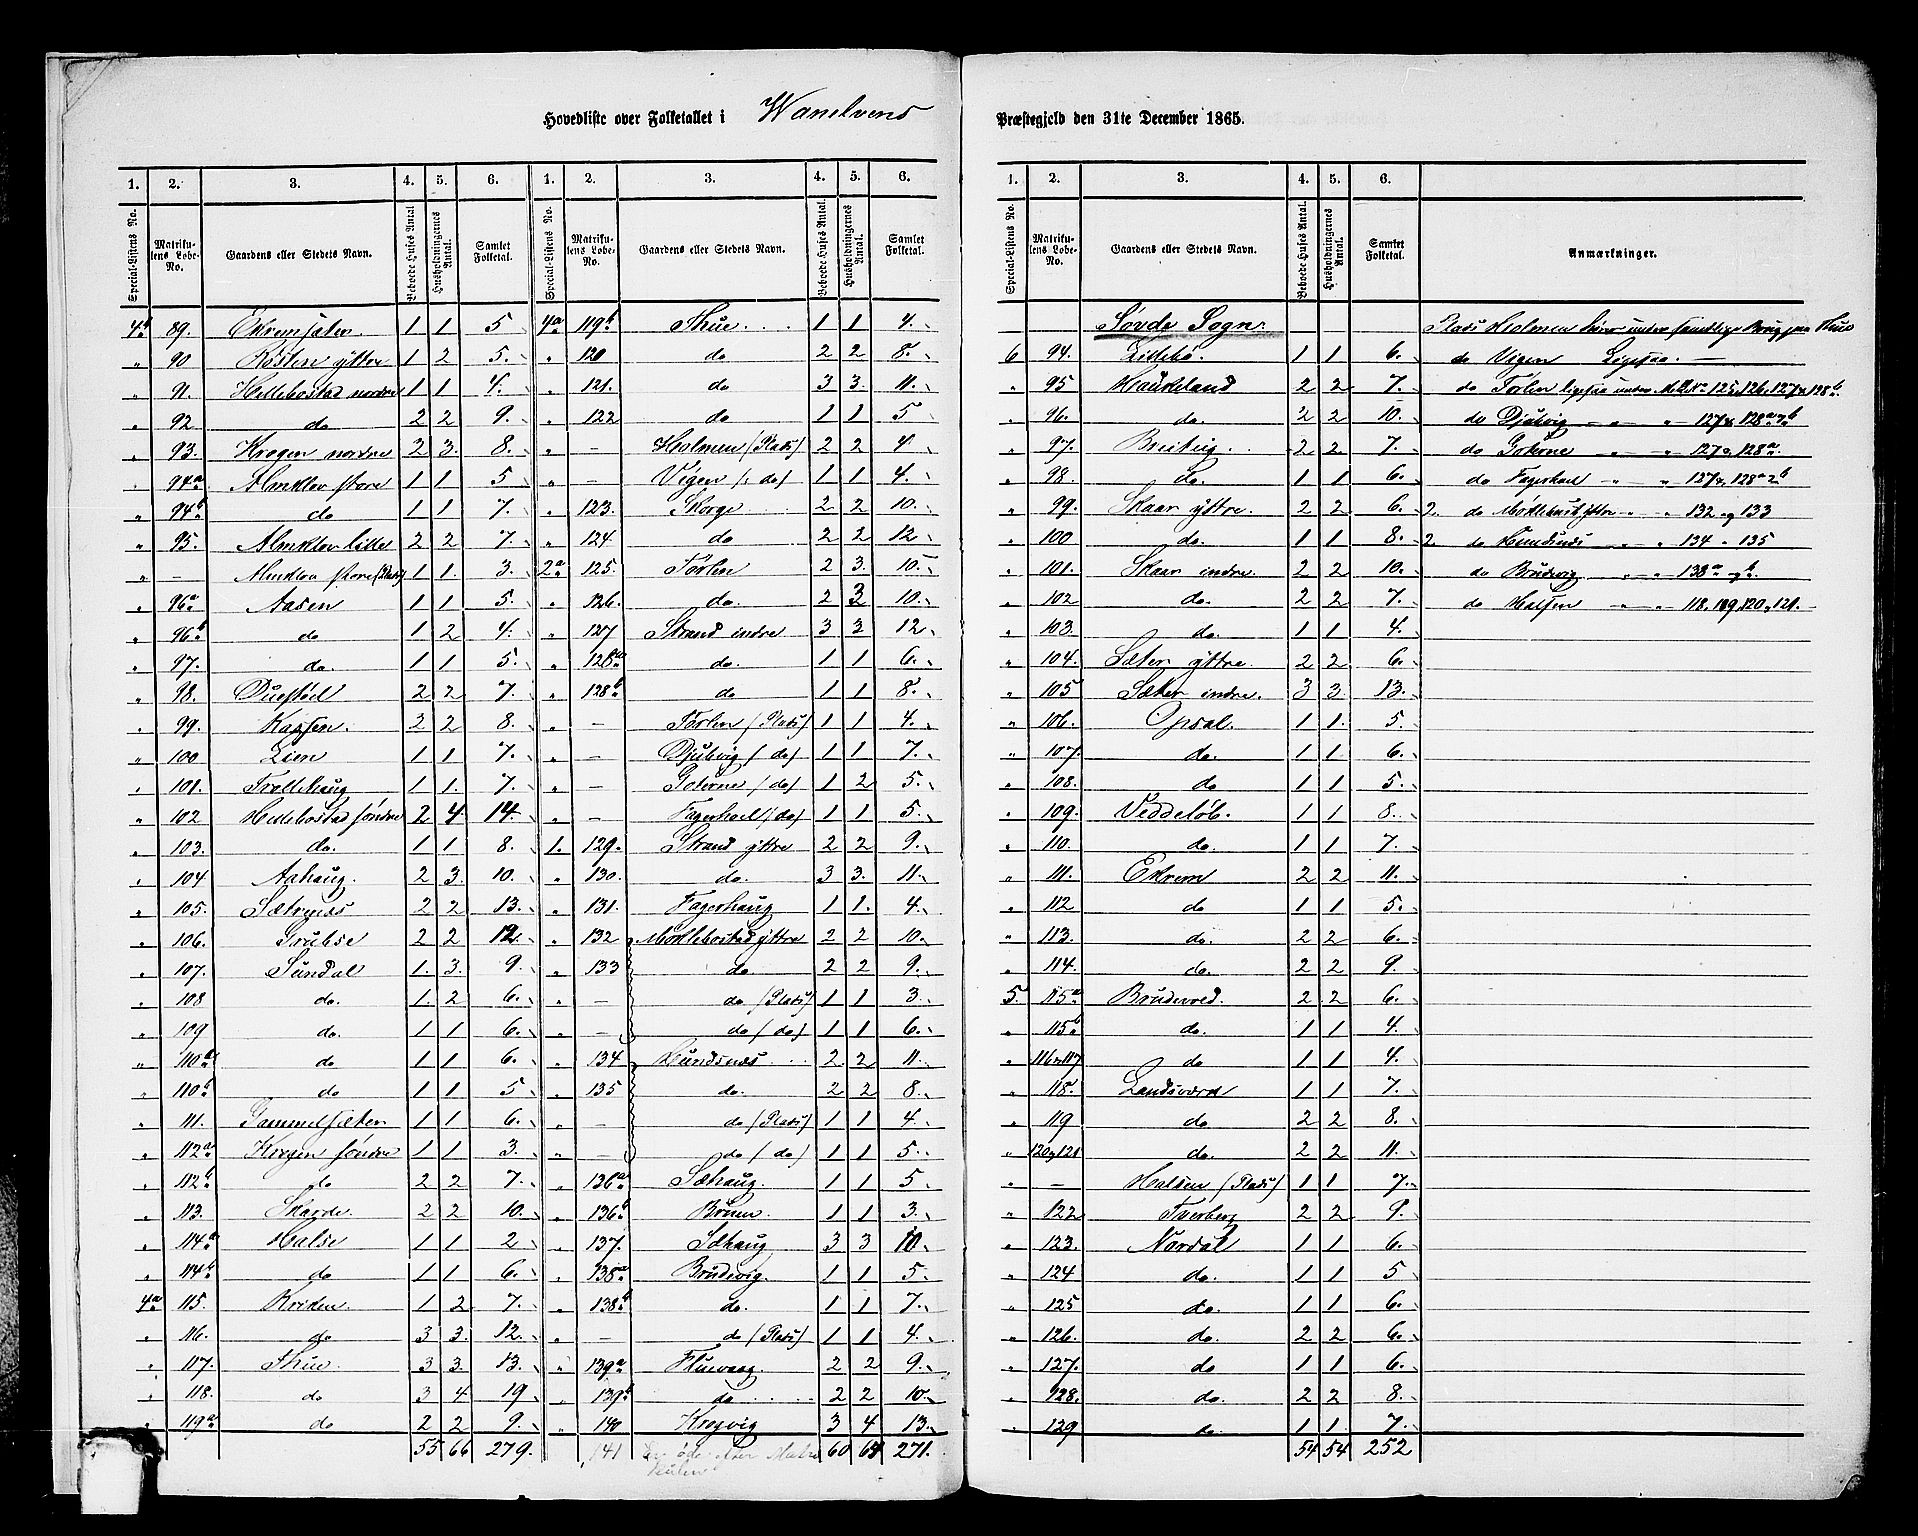 Hovedliste over Folketallet i Wanelvens Præstegjeld den 31te December 1865.
1. 2. 3. 4. 5. 6. 1. 2. 3. 4. 5. 6.
Special-Listens No. Matrikulens Løbe-No. Gaardens eller Stedets Navn. Beboede Huses Antal. Husholdningernes Antal. Samlet Folketal. Special-Listens No. Matrikulens Løbe-No. Gaardens eller Stedets Navn. Beboede Huses Antal. Husholdningernes Antal. Samlet Folketal.
4b 89. Ekremsæter 1 1 5 4a 119b Thue 1 1 4.
" 90 Røsten yttre 1 2 5. " 120 do 2 2 8.
" 91. Hellebostad nordre 1 1 4. " 121. do 3 3. 11.
" 92 do 2 2 9. " 122 do 1 1 5
" 93. Kragen nordre 2 3. 8. " - Holmen (Plads) 2 2 4
" 94a Almklov store 1 1 5 " - Vigen (: do) 1 1 4.
" 94b do 1 1 7. " 123. Skorge 2 2 10.
" 95. Almklov lille 2 2 7. " 124. do 2 2 12
" - Almklov store (Plads) 1 1. 3. 2a 125. Förlen 2 3. 10.
" 96a Aasen 1 1 5. " 126. do. 2 3 10.
" 96b do 1 2 4. " 127 Strand indre 3 3 12
" 97. do. 1 1 5. " 128a do. 1 1 6.
" 98. Duestöl 2 2 7. " 128b do 1 1 8.
" 99. Kassen. 2 2 8. " - Förlen (Plads) 1 1 4.
" 100 Lien 1 1 7. " - Djubvig (do) 1 1 7.
" 101. Trollehaug 1 1. 7. " - Goterne (do) 1 2 5.
" 102 Hellebostad söndre 2 4. 14. " - Fagerhoel (: do) 1 1 5.
" 103. do. 1 1 8. 1. 129. Strand yttre 2 2 9.
" 104 Aahaug. 2 3. 10. " 130. do. 3 3. 11.
" 105. Sætrenes 2 2 13. " 131. Fagerhaug 1 1. 4.
" 106. Grubse 2 2 12. " 132 Moklebostad yttre 2 2 10.
" 107. Sundal 1. 3. 9. " 133 do 2 2 9.
" 108 do. 1. 2 6. " - do (Plads) 1 1 3.
" 109 do. 1 1 6. " - do (do) 1 1 6.
" 110a do 1 1 6. " 134 Hundsnes 2 2 11.
" 110b do 1 1 5 " 135 do. 2 2 8
" 111. Gammelsæter 1 1 6. " - do (Plads) 1 1 4
" 112a Kragen söndre 1 1 3. " - do (do) 1 1 5.
" 112b do 2 2 7. " 136a Sæhaug. 1 1 5
" 113. Skarde 2 2 10. " 136b Bruen. 1 1 3.
" 114a Halse 1 1 2 " 137. Sæhaug 3 3 10.
" 114b do 1 1 6. " 138a Brudevig. 1 1 5.
4a 115. Kviden 1 2 7. " 138b do. 1 1 7.
" 116. do 3 3. 12. " - do (Plads) 1 1 4.
" 117. Thue. 3 3. 13. " 139a Fluevaag 2 2 9.
" 118. do 3 4 19 " 139b do 2 2 10.
" 119a do 2 2 9. " 140 Kragvig 3 4 13.
55 66 279. 141 60 64 271.
1. 2. 3. 4. 5. 6.
Special-Listens No. Matrikulens Løbe-No. Gaardens eller Stedets Navn. Beboede Huses Antal. Husholdningernes Antal. Samlet Folketal. Anmærkninger.
Sövde Sogn: Plads Holmen under samtlige Brug paa Thue
6 94. Lillebö. 1 1 6. do Vigen Ligesaa. -
" 95 Haukeland 2 2 7. do Förlen ligesaa under M.No 125, 126, 127 & 128b.
" 96. do. 2 2 10. do Djubvig - " - " 127 & 128a & b
" 97. Breiteig 2 2 7. do Goterne " - " 127 & 128a.
" 98. do. 1 1 6. do Fagerhoel " - " 127 & 128a & b
" 99. Skaar yttre. 2 2 6. 2. do Moklebust yttre " - " 132 og 133
" 100 do. 1 1 8. 2. do Hundsnes " - " 134 " 135
" 101. Skaar indre. 2 2 10. do Brudevig " - " 138a og b.
" 102 do. 2 2 7. do Halsen " - " 118, 119, 120 & 121.
" 103. do. 1 1 4.
" 104. Sæter yttre. 2 2 6.
" 105 Sæter indre. 3 3. 13.
" 106. Opsal. 1 1. 5.
" 107. do. 1 1 6.
" 108. do 1 1 5.
" 109. Veddelöb. 1 1 8.
" 110. do. 1 1 7.
" 111. Ekrem 2 2 11.
" 112 do 1 1 5.
" 113. do. 2 2 6.
" 114. do. 2 2 9.
5. 115a Brudevold. 2 2 6.
" 115b do. 1 1 4.
" 116 & 117 do 1 1 4.
" 118. Landsværk 1 1 7.
" 119 do 2 2 8.
" 120 & 121 do. 2 2 11.
" - Halsen (Plads) 1 1 7.
" 122 Tverberg 2 2 9.
" 123. Nordal 1 1 6.
" 124 do. 1 1 5
" 125 do. 1 1 6.
" 126. do. 2 2 6.
" 127. do 1 1 6.
" 128. do. 2 2 8.
" 129 do. 1 1. 7.
54 54 252